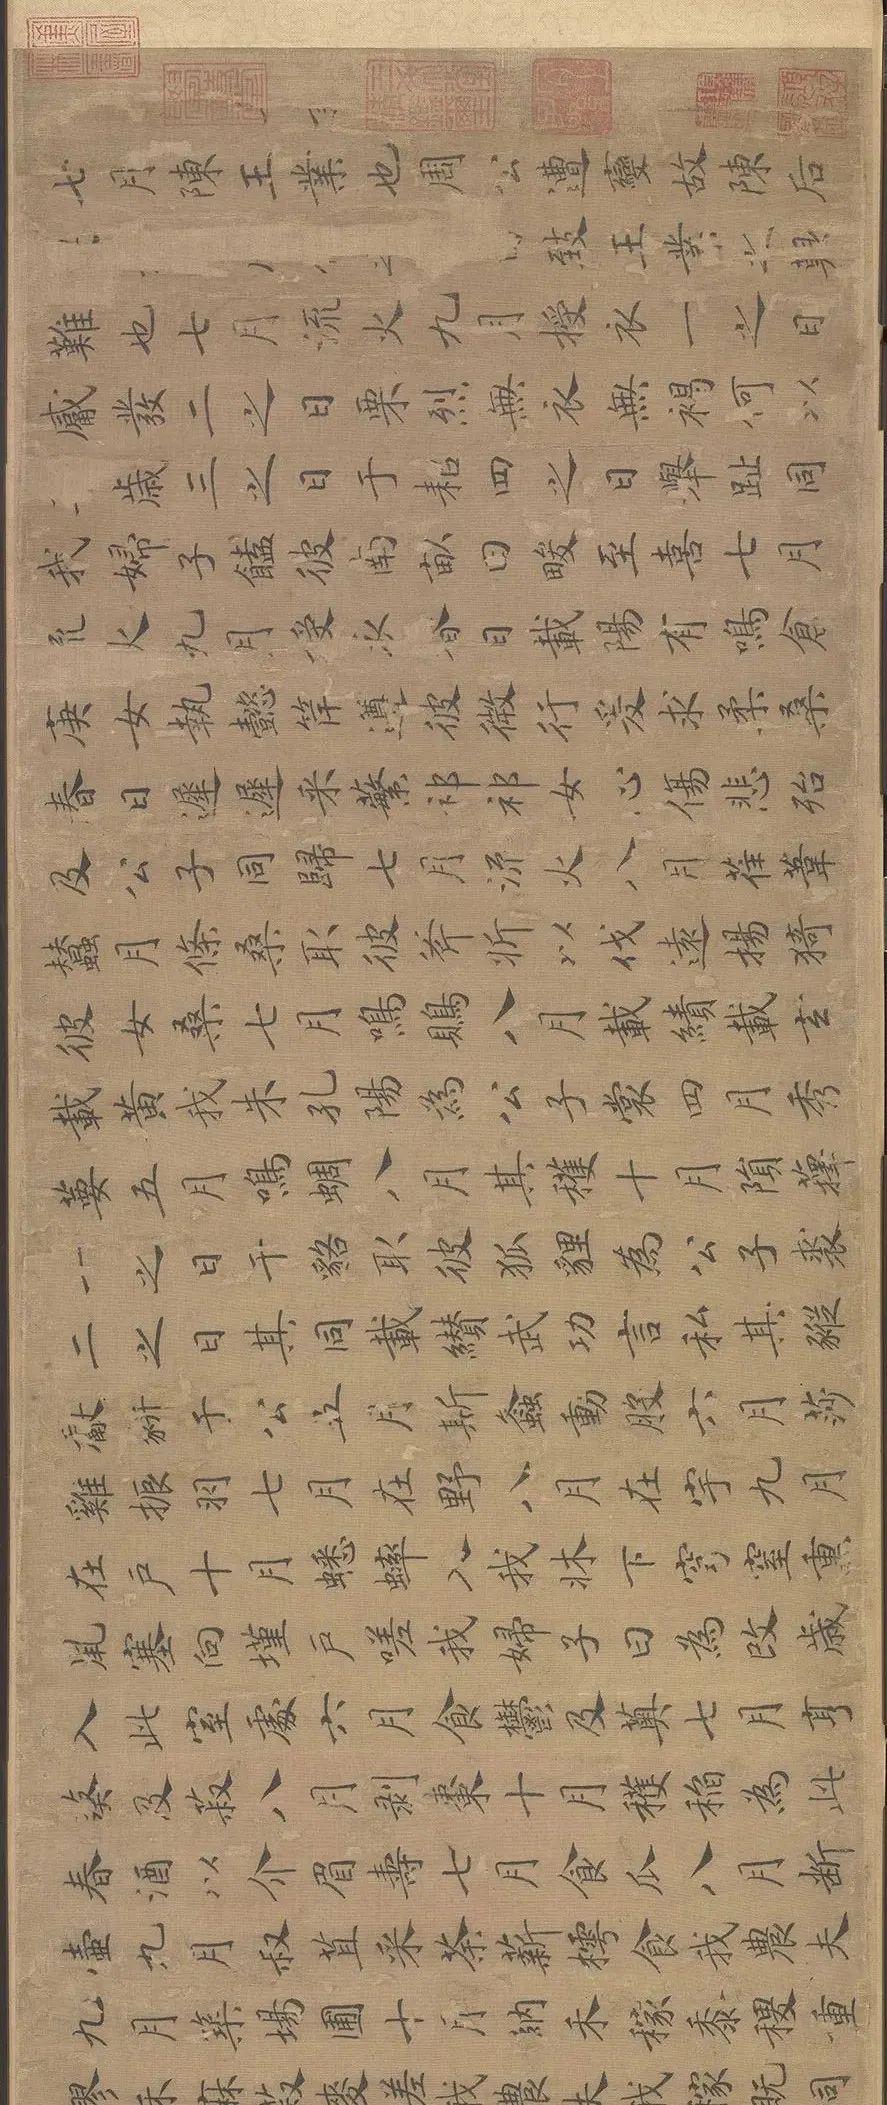 七月陳王業也周公遭變故陳后
致王業之
難也七月流火九月授衣一之日
觱發二之日栗烈無衣無褐何以
歲三之日于耜四之日舉趾同
我婦子饁彼南畝田畯至喜七月
流火九月授衣春日載陽有鳴倉
庚女執懿筐遵彼微行爰求柔桑
春日遲遲采蘩祁祁女心傷悲殆
及公子同歸七月流火八月萑葦
蠶月條桑取彼斧斨以伐遠揚猗
彼女桑七月鳴鵙八月載績載玄
載黃我朱孔陽為公子裳四月秀
葽五月鳴蜩八月其穫十月隕蘀
一之日于貉取彼狐貍為公子裘
二之日其同載纘武功言私其豵
獻豜于公五月斯螽動股六月莎
雞振羽七月在野八月在宇九月
在戶十月蟋蟀入我牀下穹窒熏
鼠塞向墐戶嗟我婦子曰為改歲
入此室處六月食鬱及薁七月亨
葵及菽八月剝棗十月穫稻為此
春酒以介眉壽七月食瓜八月斷
壺九月叔苴采荼薪樗食我農夫
九月築場圃十月納禾稼黍稷重
穋禾麻菽麥嗟我農夫我稼既同